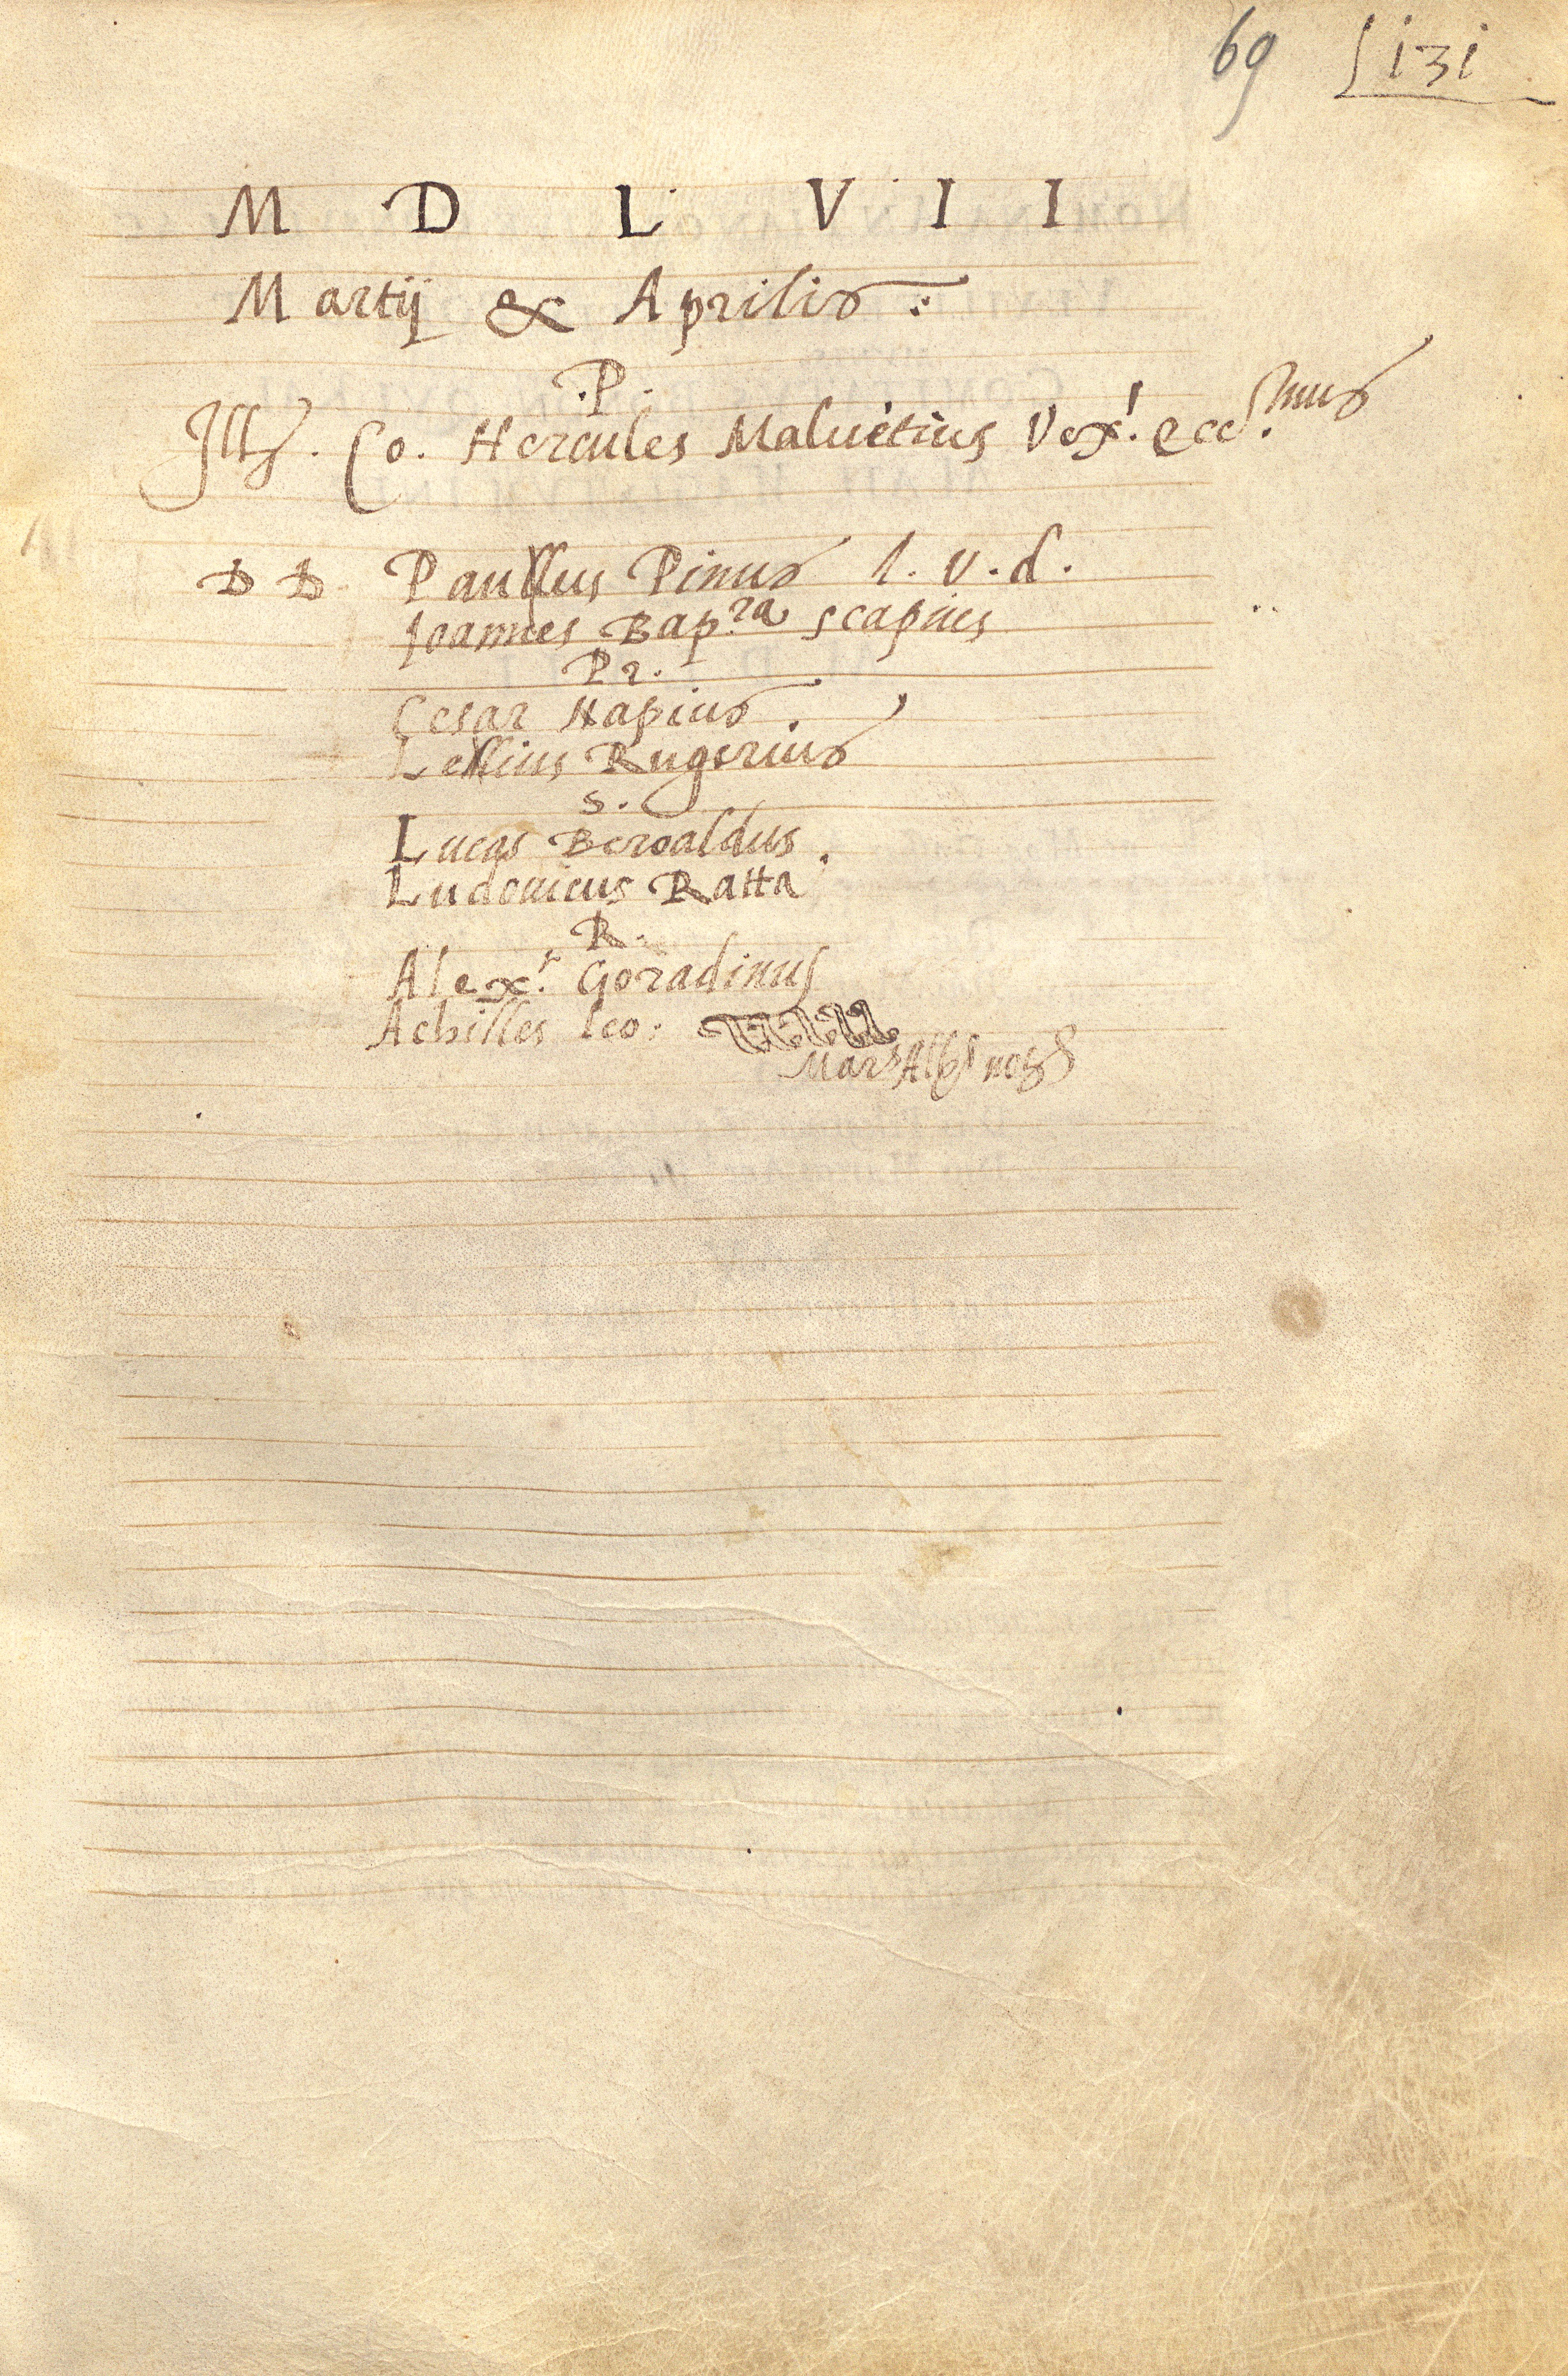 69 131
M D L V I I
Martij & Aprilis
.P.
Ills. Co. Hercules Maluetius Vex.r ecc.mus
D D Paullus Pinus I. V. d.
Joannes Bap.ta Scapius
Pr.
Cesar Napius.
Lellius Rugerius
S.
Lucas Beroaldus.
Ludouicus Ratta
R.
Alex.r Goradinus
Achilles leo: